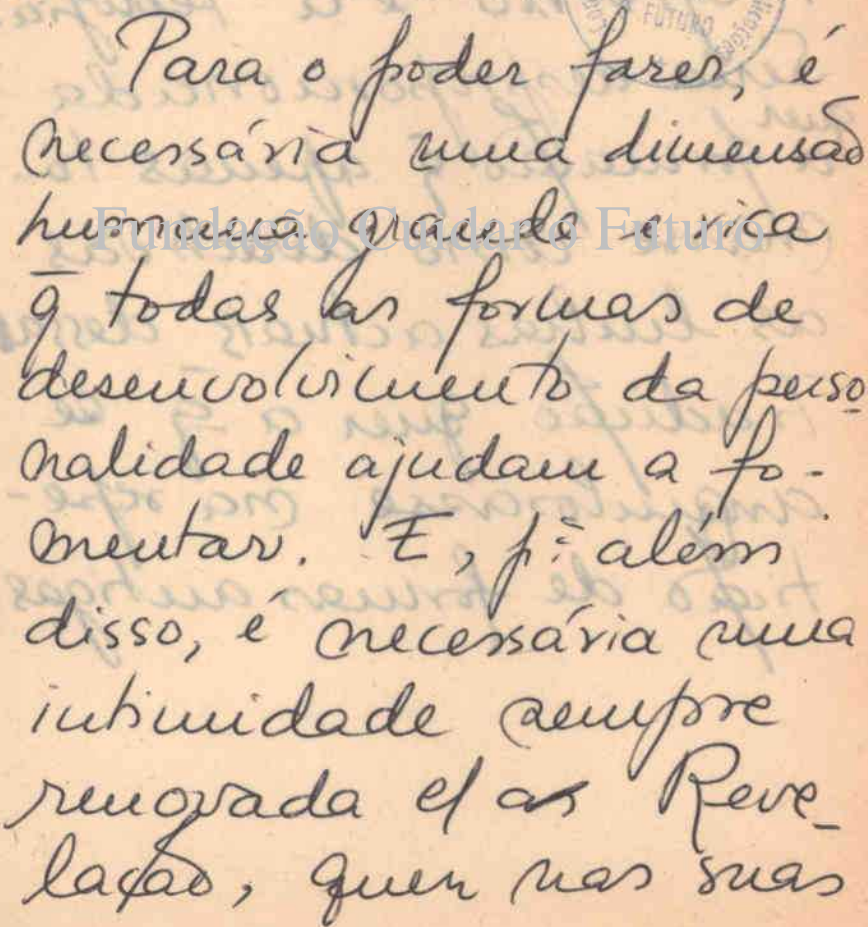 FUTURO
Para o poder fazer, é
necessária uma dimensão
humana grande e rica
Fundação Cuidar o Futuro
q̄ todas as formas de
desenvolvimento da perso
nalidade ajudam a fo-
mentar. E, pª além
disso, é necessária uma
intimidade sempre
renovada c/ as Reve-
lação, quer nas suas